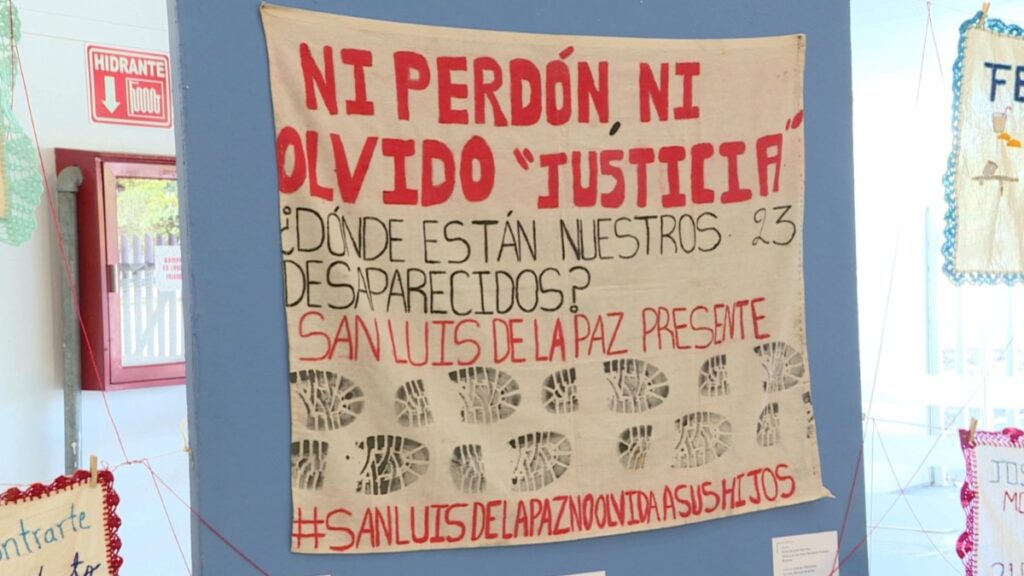 HIDRANTE
NI PERDÓN NI
OLVIDO "JÚSTICIA"
¿DÓNDE ESTÁN NUESTROS 23
DESAPARECIDOS?
SAN LUIS DE LA PAZ PRESENTE
#SANLUISDELAPAZNOOLVIDAASUSHIJOS
FE
ontrarte
JOS